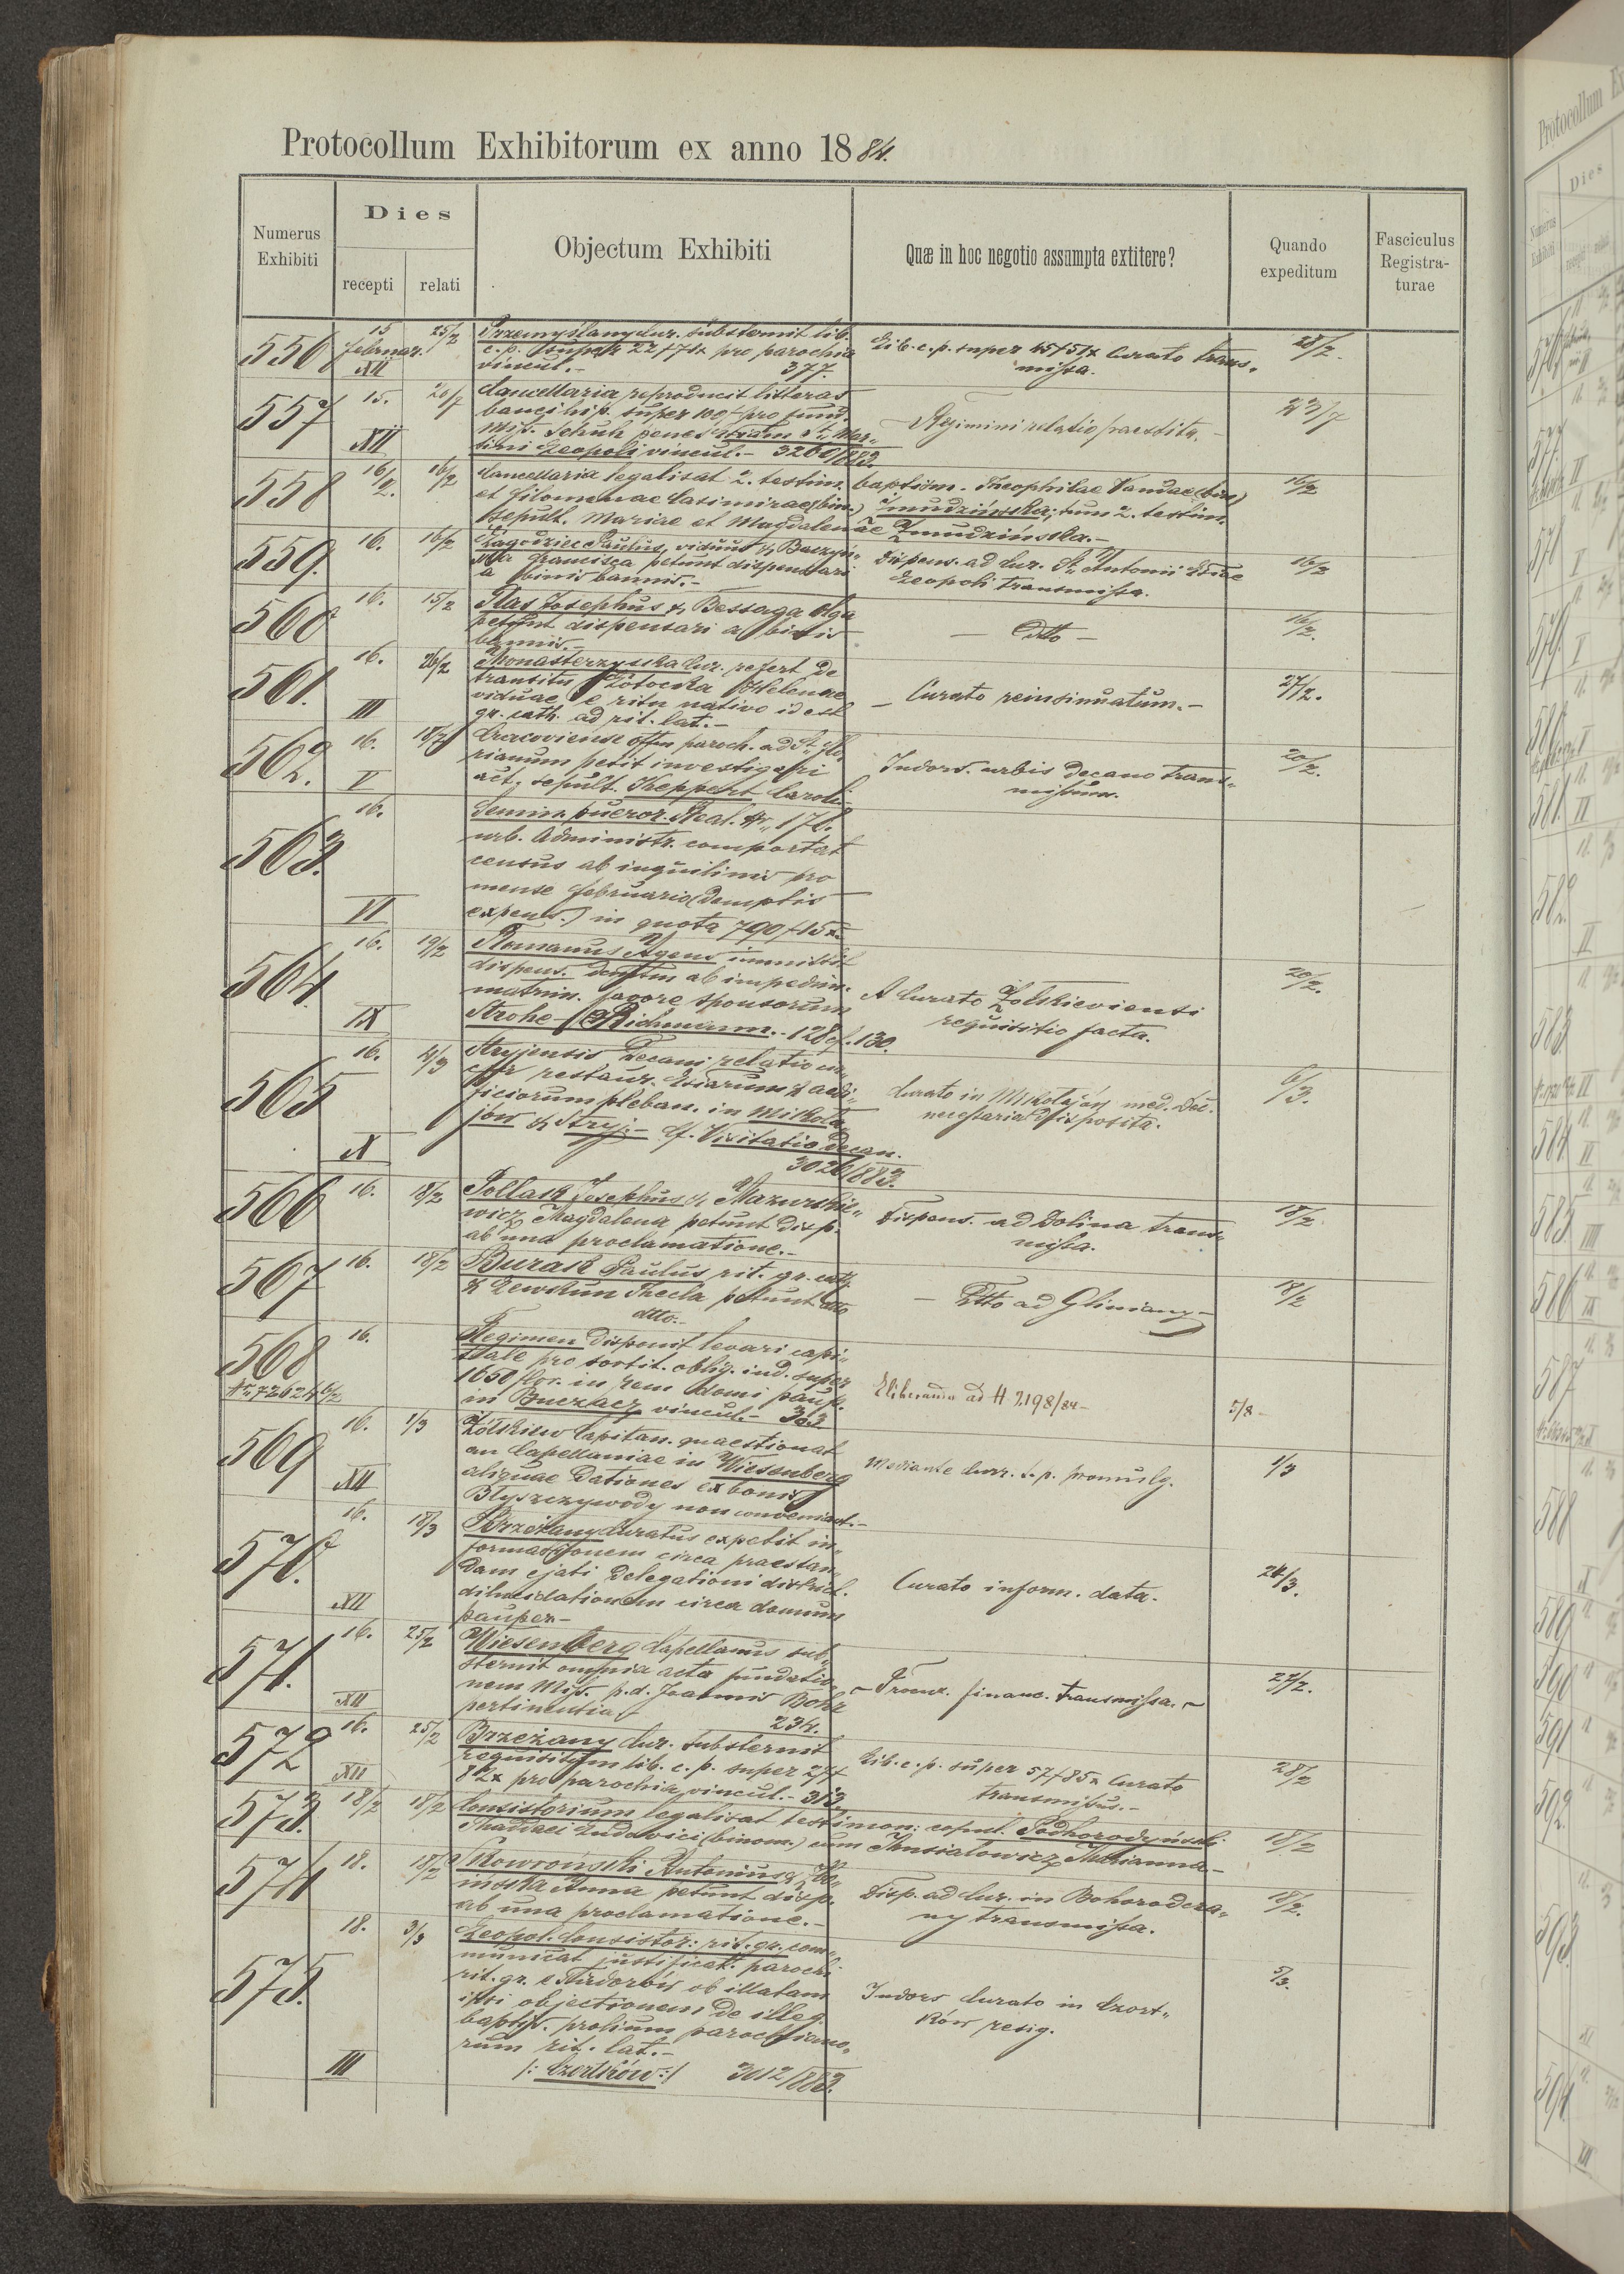 Protocollum Exhibitorum ex anno 1884.
Numerus Exhibiti
Dies
recepti
relati
Objectum Exhibiti
Quæ in hoc negotio assumpta extitere?
Quando expeditum
Fasciculus Registra-
turae
556
15 februar.
XII
25/2
Przemyślany Cur. substernit lib.
c. p. super 22 f 71x pro parochia
vincul.- 377.
Lib. c. p. super 45 f 51x Curato trans„
missa.
28/2.
557
15.
XII
20/7
Cancellaria reproducit litteras
banci hip. super 100 f pro fund.
Miss. Schuh penes St. Mar„
tini Leopoli vincul.- 3260/883.
Regimini relatio praestita.-
23/7
558
16/2.
16/2
Cancellaria legalisat 2. testim. baptism. Theophilae Vandae (bin.)
et Filomenae Casimirae (bin.) Żmudzińska; tum 2. testim.
sepult. Mariae et Magdalenae Żmudzińska.-
16/2
559.
16.
16/2
Zagodziec Paulus, viduus &
Francisca petunt dispensari
a binis bannis.-
Dispens. ad Cur. St. Antonii
Leopoli transmissa.
16/2
560
16.
15/2
Josephus & Bessaga Olga
petunt dispensari a binis
bannis.-
— dtto —
16/2.
561.
16.
III
26/2
Monasterzyska Cur. refert de
transitu Helenae
viduae e ritu nativo id est
gr. cath. ad rit. lat.-
— Curato reinsinuatum.-
27/2.
562.
16.
V
18/2
Cracoviense offm paroch. ad St. Flo„
rianum petit investigari
act. sepult. Keppert Caroli
Indors. urbis decano trans„
missum.
20/2.
563.
16.
VI
Semin. pueror. Real. Nr. 178.
urb. Administr. comportat
census ab inquilinis pro
mense februario (demptis
expens.) in quota 790 f 15x.-
564.
16.
IX
19/2
Romanus Agens immittit
dispens. ab impedim.
matrim. favore sponsorum
Strohe - 128 cf. 130.
A Curato Żołkieviensi
requisitio facta.
20/2.
565
16.
X
4/3
Stryjensis Decani relatio
restaur. & aedi„
ficiorum pleban. in Mikoła„
jów & Stryj.- cf. Visitatio decan.
3020/883.
Curato in Mikołajów med. Dec.
necessaria disposita.
6/3.
566
16.
18/2
Pollak Josephus & Mazurkie„
wicz Magdalena petunt disp.
ab una proclamatione.-
Dispens. ad Dolina trans„
missa.
18/2.
567
16.
18/2
Burak Paulus rit. gr. cath.
& Thecla petunt dtto
dtto.-
— Dtto ad Gliniany -
18/2
568
Nr. 72624
16.
Regimen disponit levari capi„
tale pro sortit. oblig. ind. super
1650 flor. in rem domi paup.
in Buczacz vincul.- 303
Eliberanda ad N 2198/84 -
5/8 -
569
16.
XII
1/3
Żółkiew Capitan. quaestionat
an Capellaniae in Wiesenberg
aliquae dationes ex bonis
Błyszczywody non conveniant.-
Mediante Curr. s. p. promulg.
1/3
570.
16.
XII
18/3
Brzeżany Curatus expetit in„
formationem circa praestan„
dam ejati delegationi district.
dilucidationem circa domum
pauper.-
Curato inform. data.
24/3.
571.
16.
XII
25/2
Wiesenberg Capellanus sub„
sternit omnia acta fundatio„
nem Miss. p. d. Joannis
pertinentia 234.
~ Procur. financ. transmissa. ~
27/2.
572
16.
XII
25/2
Brzeżany Cur. substernit
requisitum lib. c. p. super 27 f
82x pro parochia vincul.- 313.
Lib. c. p. super 57 f 85x Curato
transmissus.-
28/2
573.
18/2
18/2
Consistorium legalisat testimon: copul. Podhorodyński
Thaddaei Ludovici (binom.) cum Marianna.-
18/2
574
18.
18/2
Skowroński Antonius &
Anna petunt disp.
ab una proclamatione.-
Disp. ad Cur. in Bohorodcza„
ny transmissa.
18/2.
575.
18.
III
3/3
Leopol. Consistor: rit. gr. com„
municat justificat. parochi
rit. gr. e ob illatam
ipsi objectionem de illeg.
baptis. prolium parochiano„
rum rit. lat.-
/: Czortków :/ 3012/883.
Indors Curato in Czort„
ków resig.
5/3.